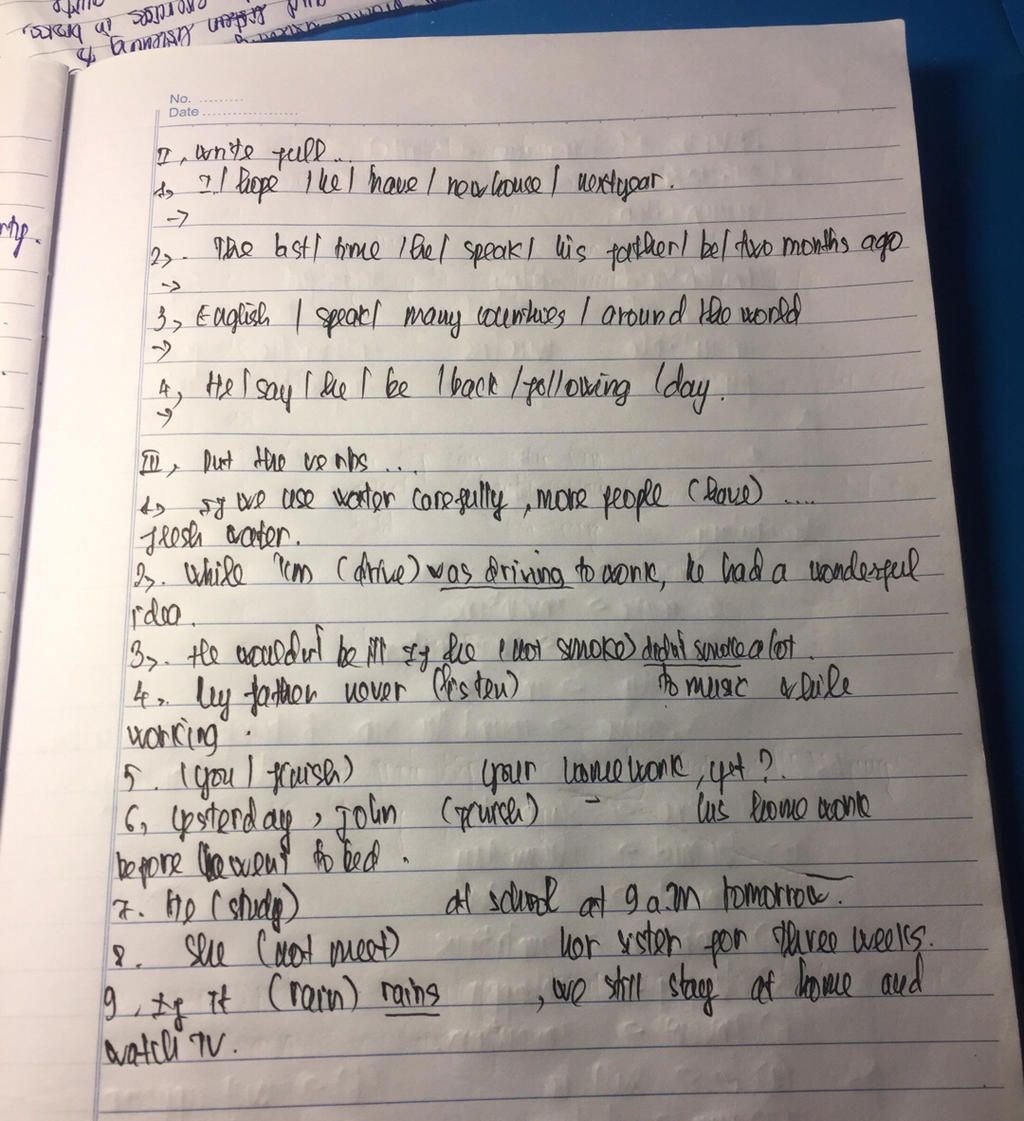 listening
listen listening to
exercises in
No. .........
Date ...................
II, write full...
1, I / hope / he / have / new house / next year.
->
2, . The last / time / he / speak / his farther / be / two months ago
->
3, English / speak / many countries / around the world
->
4, He / say / he / be / back / following / day.
->
III, Put the verbs ...
1, If we use water carefully, more people (have) ....
flesh water.
2, . While Tim (drive) was driving to work, he had a wonderful
idea.
3, . He wouldn't be ill If he (not smoke) didn't smoke a lot.
4, . My father never (listen) to music while
working.
5. (you / finish) your homework, yet?
6, Yesterday, John (finish) his home work
before he went to bed.
7. He (study) at school at 9 a.m tomorrow.
8. She (not meet) her sister for three weeks.
9, If it (rain) rains, we still stay at home and
watch TV.